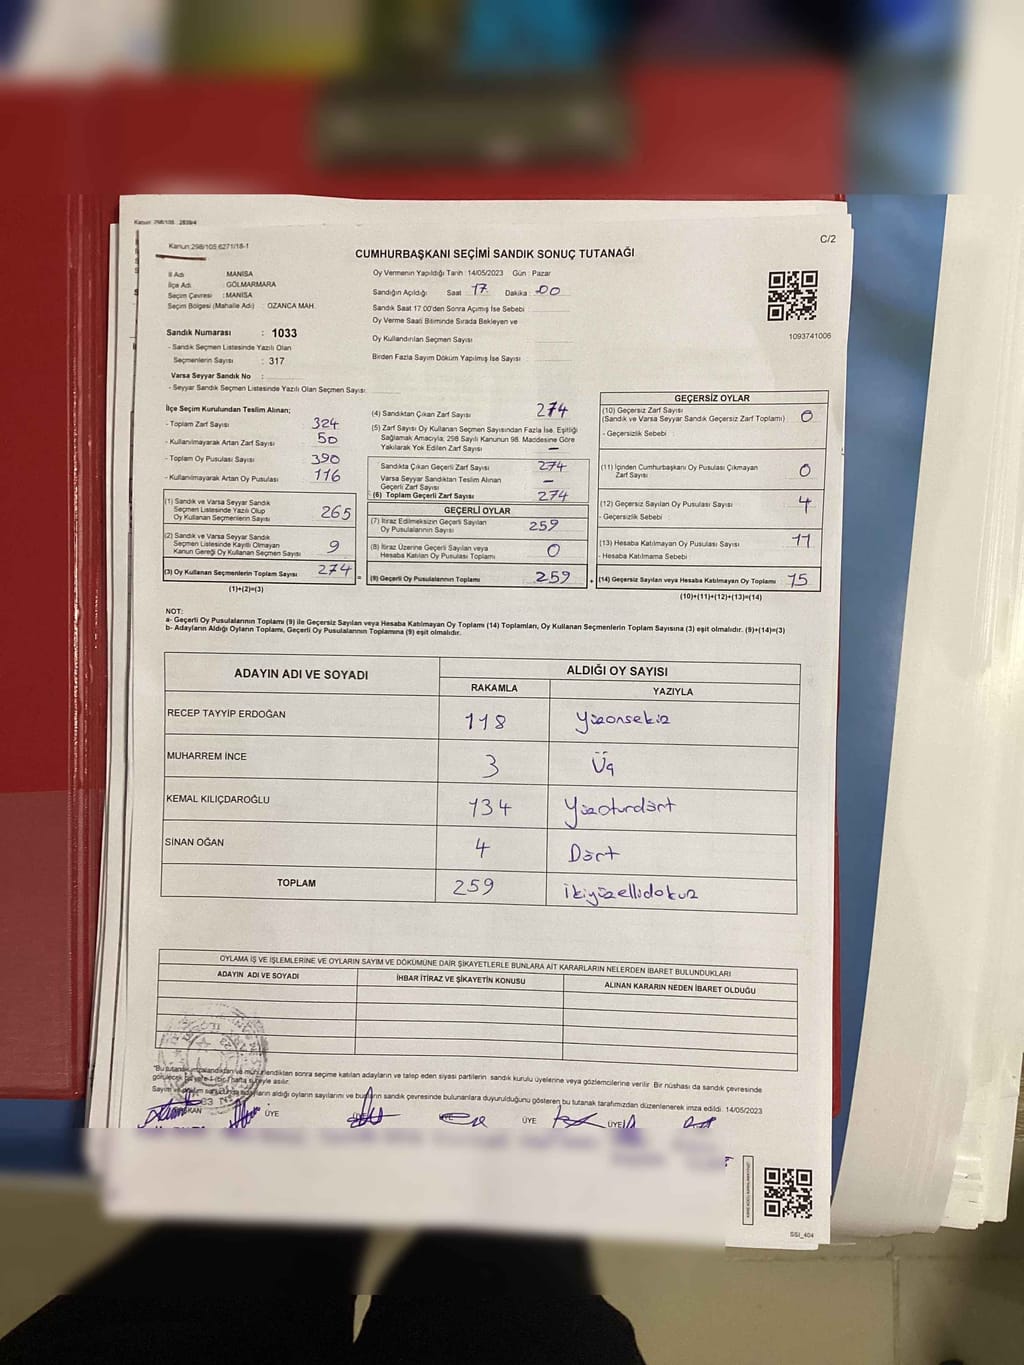 Kanun: 298/105
Kanun:298/105,6271/18-1
C/2
CUMHURBAŞKANI SEÇİMİ SANDIK SONUÇ TUTANAĞI
İl Adı : MANİSA
İlçe Adı : GÖLMARMARA
Seçim Çevresi : MANİSA
Seçim Bölgesi (Mahalle Adı) : OZANCA MAH.
Sandık Numarası : 1033
- Sandık Seçmen Listesinde Yazılı Olan
Seçmenlerin Sayısı : 317
Varsa Seyyar Sandık No :
- Seyyar Sandık Seçmen Listesinde Yazılı Olan Seçmen Sayısı:
Oy Vermenin Yapıldığı Tarih : 14/05/2023 Gün : Pazar
Sandığın Açıldığı Saat : 17 Dakika : 00
Sandık Saat 17.00'den Sonra Açımış İse Sebebi :
Oy Verme Saati Bitiminde Sırada Bekleyen ve
Oy Kullandırılan Seçmen Sayısı :
Birden Fazla Sayım Döküm Yapılmış İse Sayısı :
1093741006
İlçe Seçim Kurulundan Teslim Alınan;
- Toplam Zarf Sayısı : 324
- Kullanılmayarak Artan Zarf Sayısı : 50
- Toplam Oy Pusulası Sayısı : 390
- Kullanılmayarak Artan Oy Pusulası : 116
(1) Sandık ve Varsa Seyyar Sandık
Seçmen Listesinde Yazılı Olup
Oy Kullanan Seçmenlerin Sayısı 265
(2) Sandık ve Varsa Seyyar Sandık
Seçmen Listesinde Kayıtlı Olmayan
Kanun Gereği Oy Kullanan Seçmen Sayısı 9
(3) Oy Kullanan Seçmenlerin Toplam Sayısı 274
(1)+(2)=(3)
(4) Sandıktan Çıkan Zarf Sayısı : 274
(5) Zarf Sayısı Oy Kullanan Seçmen Sayısından Fazla İse, Eşitliği
Sağlamak Amacıyla; 298 Sayılı Kanunun 98. Maddesine Göre
Yakılarak Yok Edilen Zarf Sayısı : —
Sandıkta Çıkan Geçerli Zarf Sayısı : 274
Varsa Seyyar Sandıktan Teslim Alınan
Geçerli Zarf Sayısı : —
(6) Toplam Geçerli Zarf Sayısı : 274
GEÇERLİ OYLAR
(7) İtiraz Edilmeksizin Geçerli Sayılan
Oy Pusulalarının Sayısı : 259
(8) İtiraz Üzerine Geçerli Sayılan veya
Hesaba Katılan Oy Pusulası Toplamı : 0
(9) Geçerli Oy Pusulalarının Toplamı 259
GEÇERSİZ OYLAR
(10) Geçersiz Zarf Sayısı
(Sandık ve Varsa Seyyar Sandık Geçersiz Zarf Toplamı) : 0
- Geçersizlik Sebebi :
(11) İçinden Cumhurbaşkanı Oy Pusulası Çıkmayan
Zarf Sayısı : 0
(12) Geçersiz Sayılan Oy Pusulası Sayısı : 4
- Geçersizlik Sebebi :
(13) Hesaba Katılmayan Oy Pusulası Sayısı : 11
- Hesaba Katılmama Sebebi :
(14) Geçersiz Sayılan veya Hesaba Katılmayan Oy Toplamı 15
(10)+(11)+(12)+(13)=(14)
NOT:
a- Geçerli Oy Pusulalarının Toplamı (9) ile Geçersiz Sayılan veya Hesaba Katılmayan Oy Toplamı (14) Toplamları, Oy Kullanan Seçmenlerin Toplam Sayısına (3) eşit olmalıdır. (9)+(14)=(3)
b- Adayların Aldığı Oyların Toplamı, Geçerli Oy Pusulalarının Toplamına (9) eşit olmalıdır.
ADAYIN ADI VE SOYADI ALDIĞI OY SAYISI
RAKAMLA YAZIYLA
RECEP TAYYİP ERDOĞAN 118 Yüzonsekiz
MUHARREM İNCE 3 Üç
KEMAL KILIÇDAROĞLU 134 Yüzoturdört
SİNAN OĞAN 4 Dört
TOPLAM 259 ikiyüzellidokuz
OYLAMA İŞ VE İŞLEMLERİNE VE OYLARIN SAYIM VE DÖKÜMÜNE DAİR ŞİKAYETLERLE BUNLARA AİT KARARLARIN NELERDEN İBARET BULUNDUKLARI
ADAYIN ADI VE SOYADI İHBAR İTİRAZ VE ŞİKAYETİN KONUSU ALINAN KARARIN NEDEN İBARET OLDUĞU
*Bu tutanak imzalandıktan ve mühürlendikten sonra seçime katılan adayların ve talep eden siyasi partilerin sandık kurulu üyelerine veya gözlemcilerine verilir. Bir nüshası da sandık çevresinde
görülecek bir yere 1 (bir) hafta süreyle asılır.
Sayım ve döküm sonucunda adayların aldığı oyların sayılarını ve bunların sandık çevresinde bulunanlara duyurulduğunu gösteren bu tutanak tarafımızdan düzenlenerek imza edildi. 14/05/2023
BAŞKAN ÜYE ÜYE ÜYE ÜYE
SSI_404